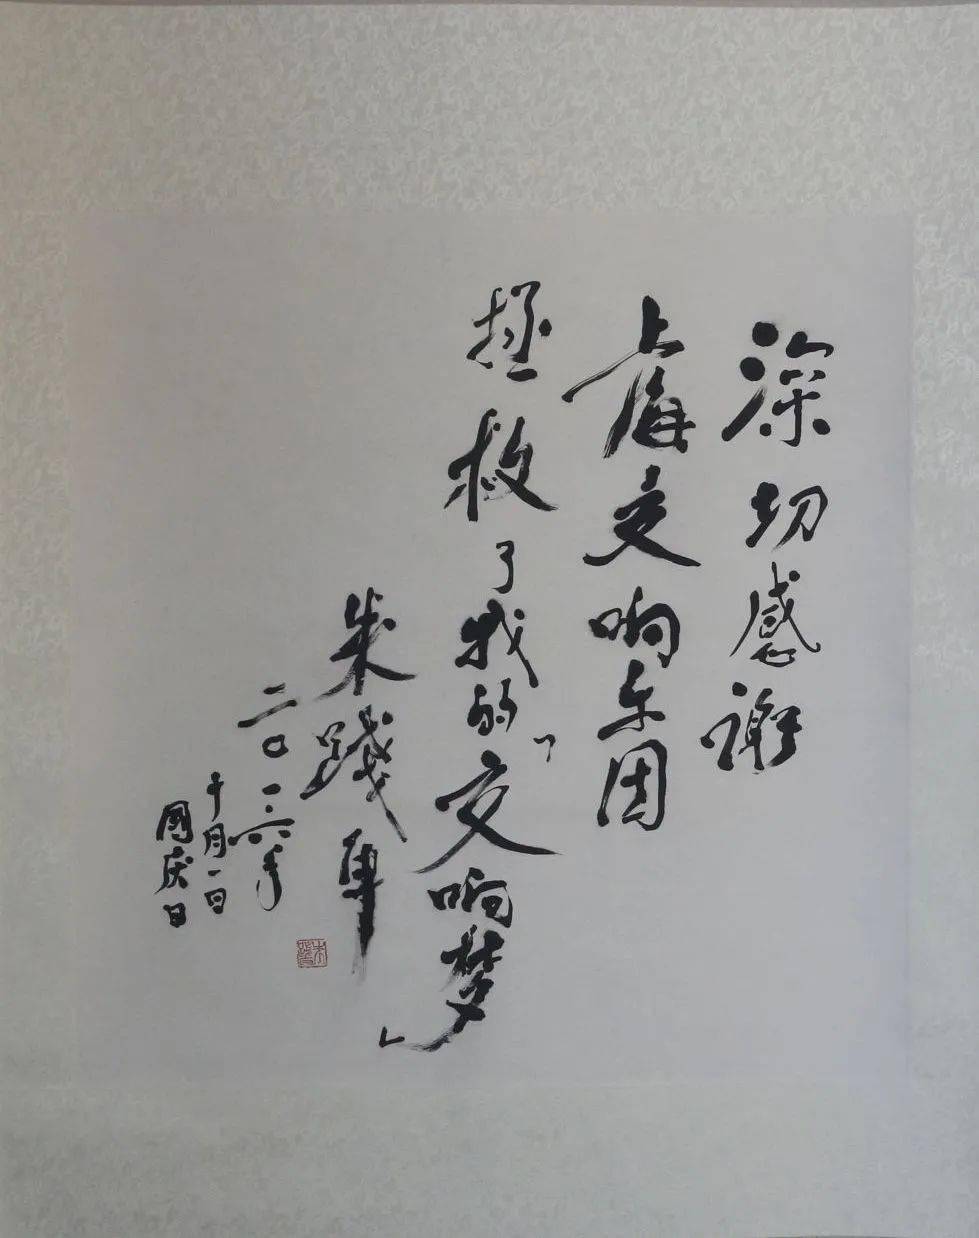 深切感谢
上海交响乐团
拯救了我的「交响梦」
朱踐耳
二〇一六年
十月一日
國庆日